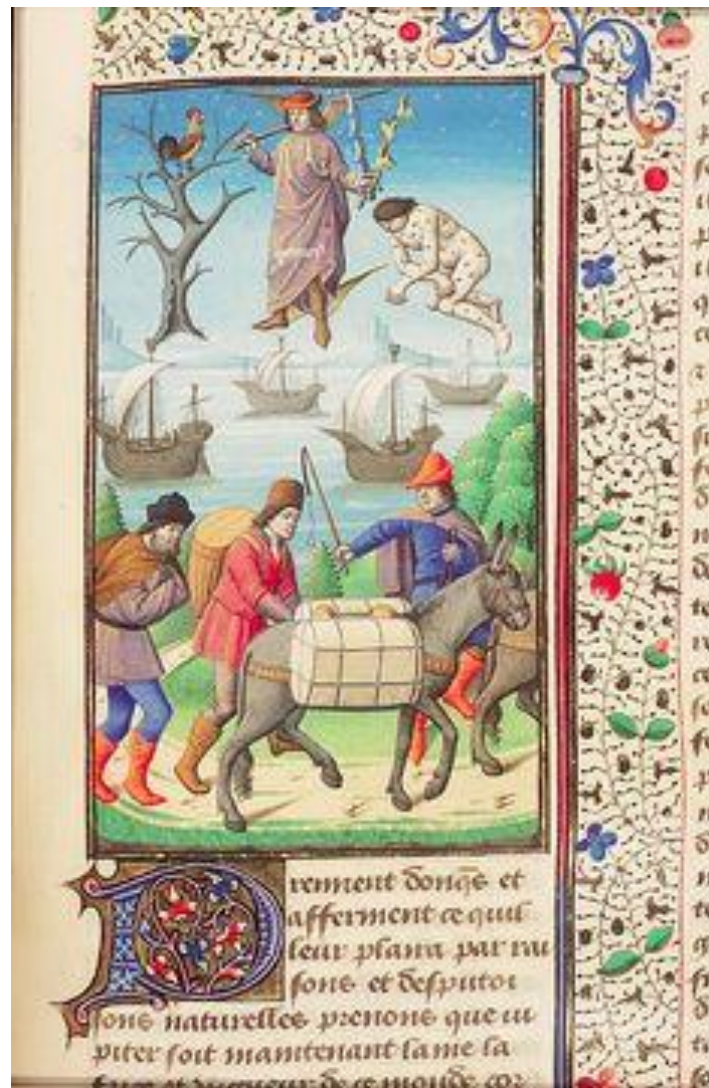 Prennent donq̄s et
afferment ce quil
leur plaira par rai
sons et desputoi
sons naturelles prenons que iu
piter soit maintenant lame la